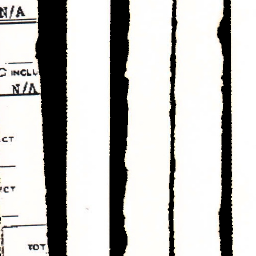 N/A
INCLU
N/A
CT
CT
TOT